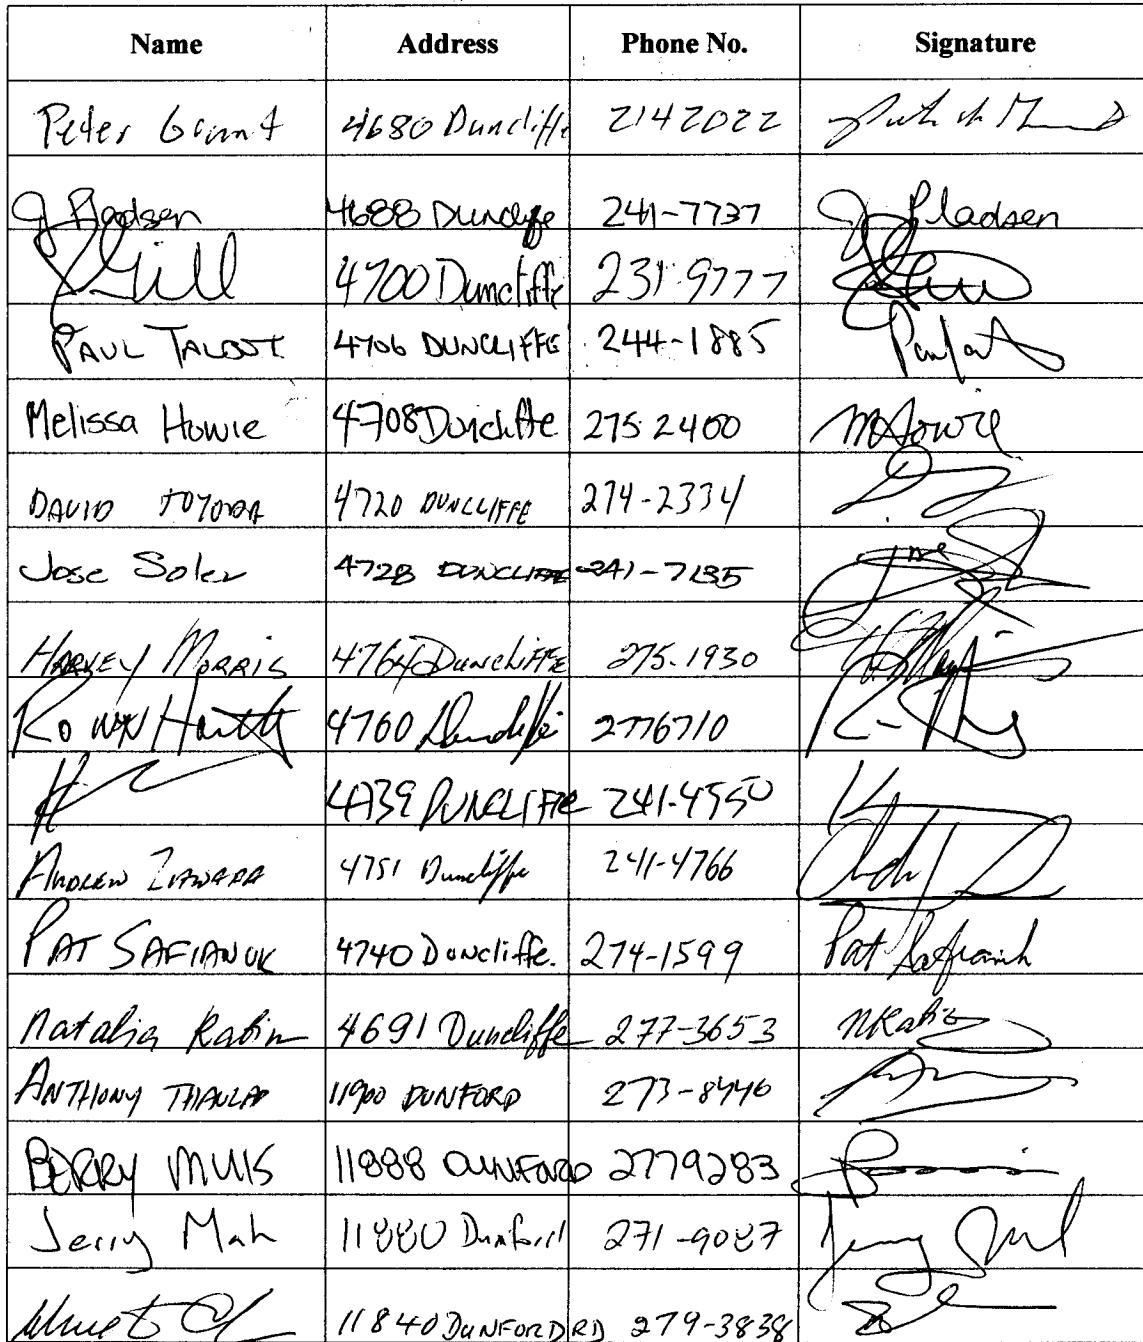 Name Address Phone No. Signature
Peter Grant 4680 Duncliffe 2142022
J Pladsen 4688 Duncliffe 241-7737 J Pladsen
Gill 4700 Duncliffe 231-9777
PAUL TALBOT 4706 DUNCLIFFE 244-1885
Melissa Howie 4708 Duncliffe 275-2400 MHowie
DAVID TOYODA 4720 DUNCLIFFE 274-2334
Jose Soler 4728 DUNCLIFFE 241-7135
HARVEY MORRIS 4764 Duncliffe 275-1930
4760 Duncliffe 2776710
4739 DUNCLIFFE 241-4550
ANDREW ZAWADA 4751 Duncliffe 241-4766
PAT SAFIANUK 4740 Duncliffe. 274-1599 Pat Safianuk
Natalia Rabin 4691 Duncliffe 277-3653 NRabin
ANTHONY 11900 DUNFORD 273-8446
BERRY MUIS 11888 DUNFORD 2779283
Jerry Mah 11880 Dunford 271-9087 Jerry Mah
11840 DUNFORD RD 279-3838